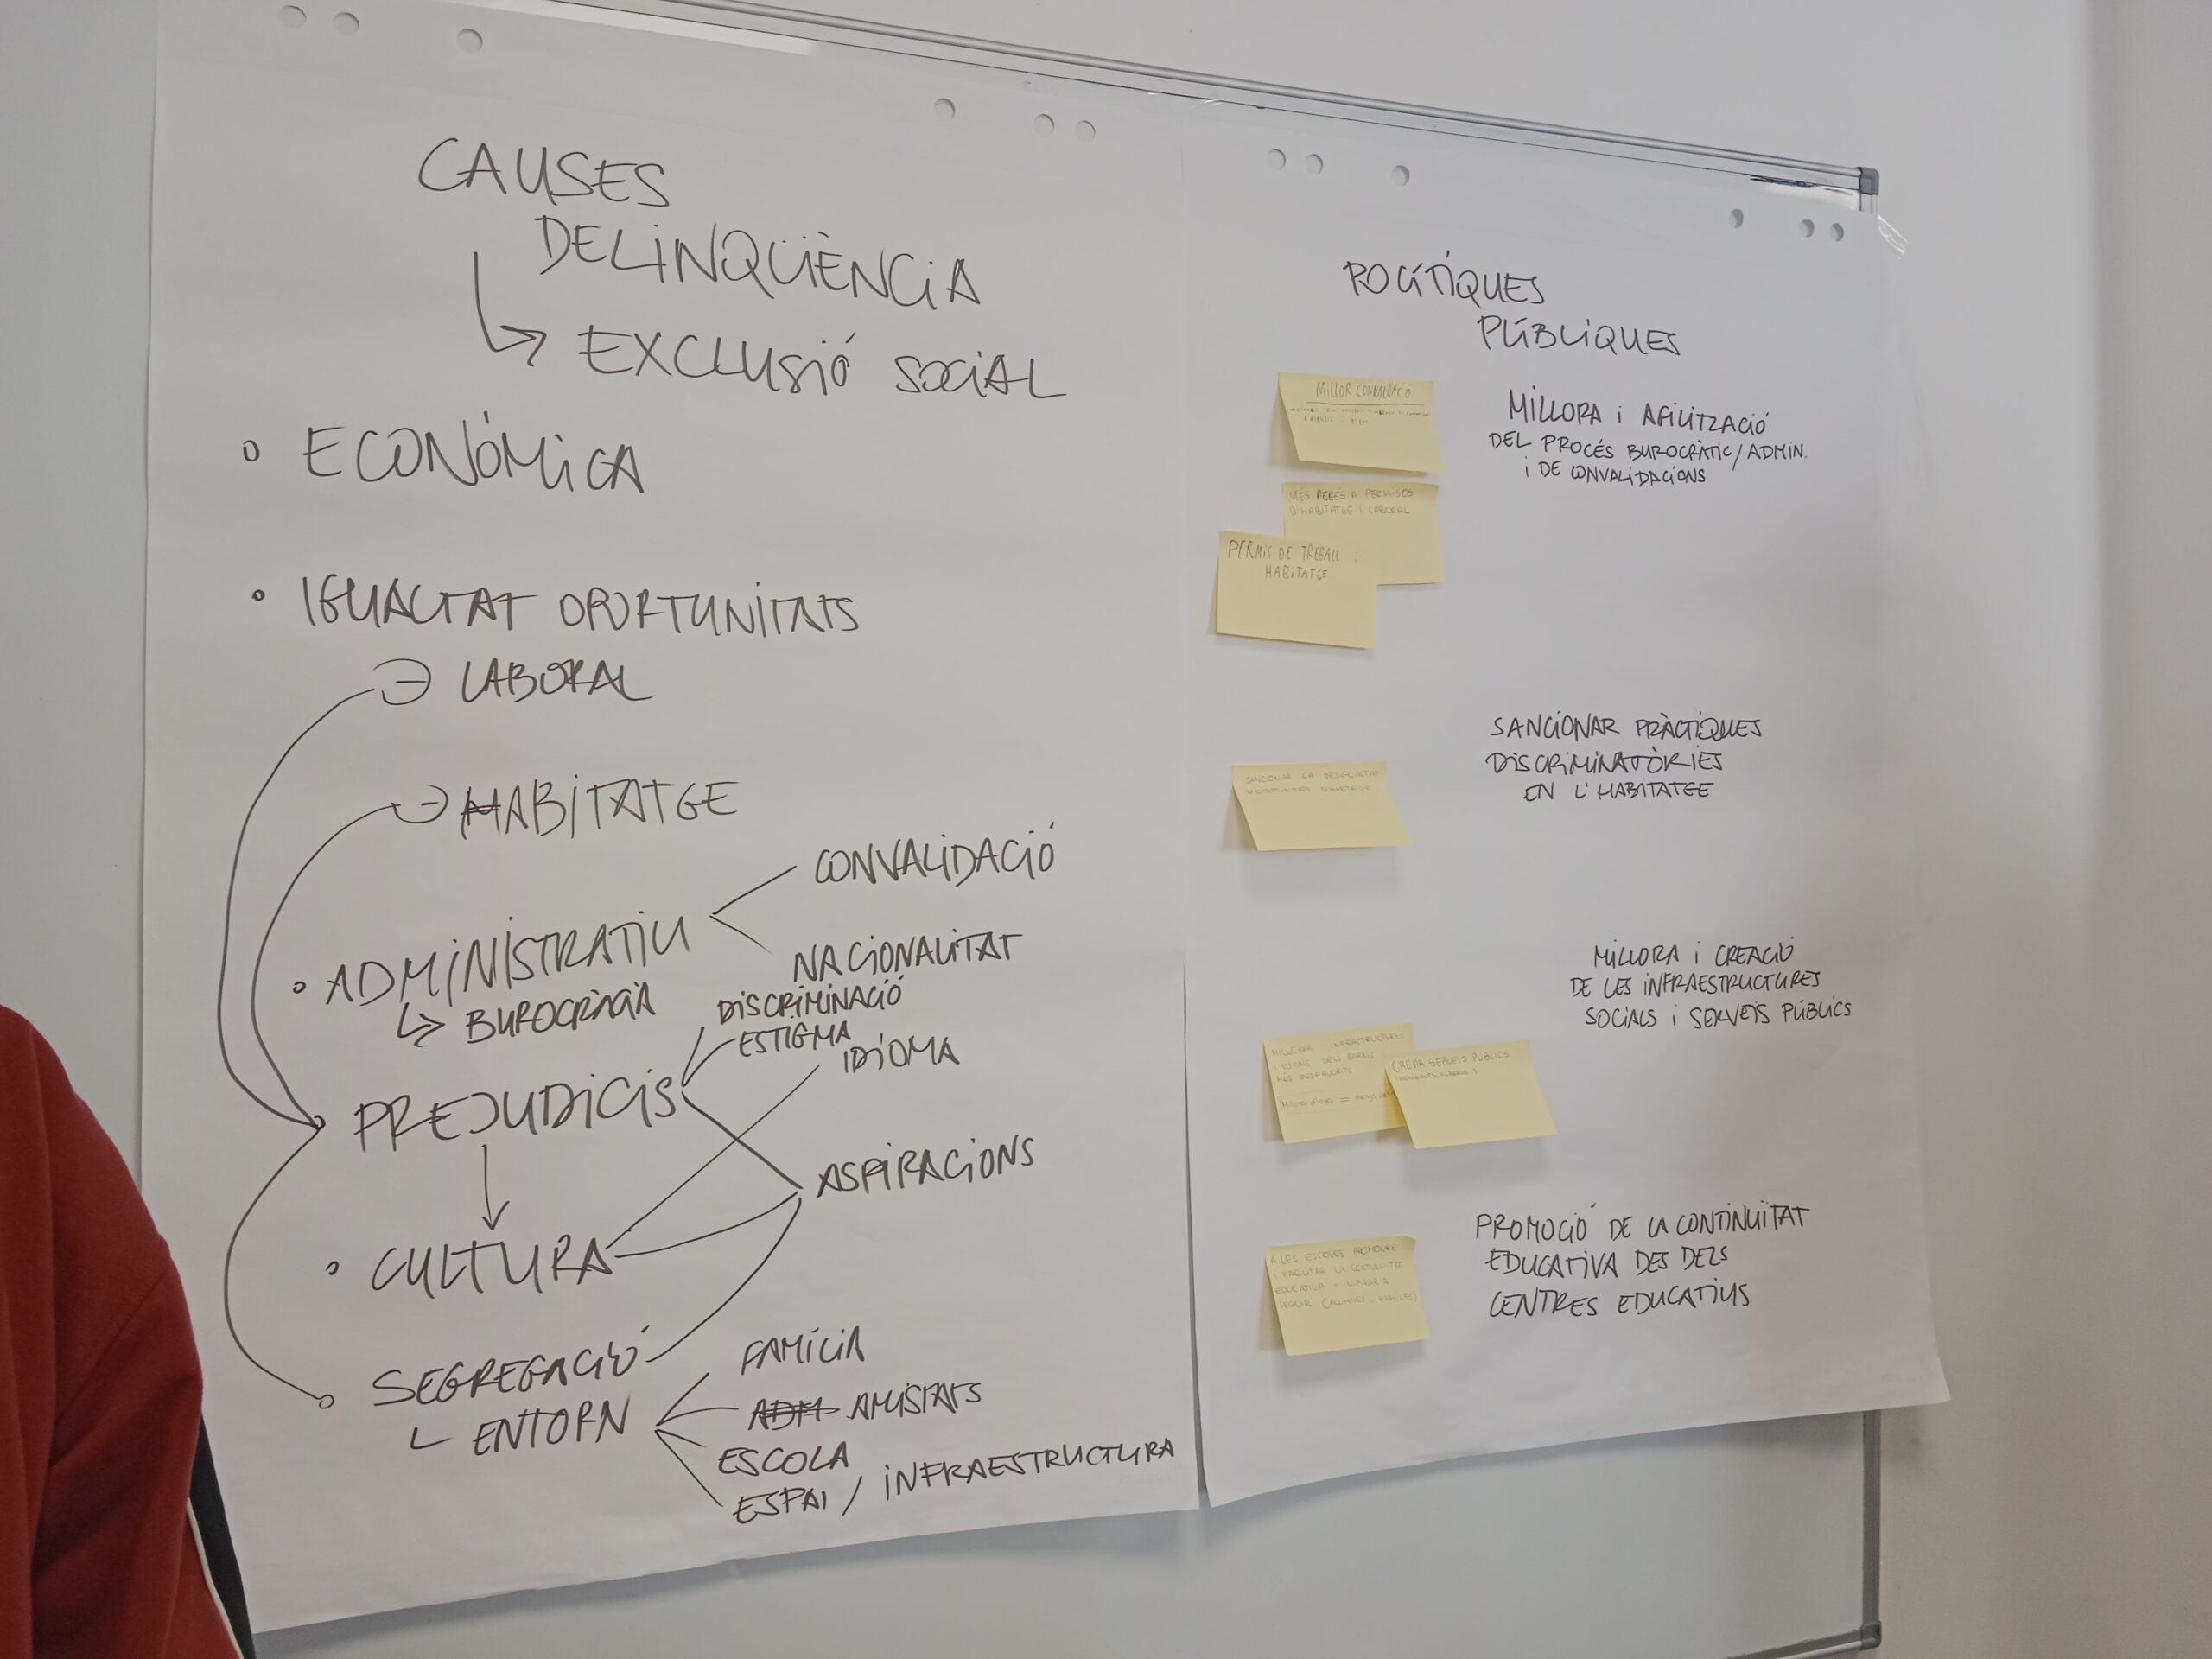 CAUSES
DELINQÜÈNCIA
↳ EXCLUSIÓ SOCIAL
• ECONÒMICA
• IGUALTAT OPORTUNITATS
LABORAL
HABITATGE
CONVALIDACIÓ
• ADMINISTRATIU
NACIONALITAT
↳ BUROCRÀCIA
DISCRIMINACIÓ
ESTIGMA
IDIOMA
PREJUDICIS
ASPIRACIONS
• CULTURA
SEGREGACIÓ
FAMÍLIA
ENTORN
AMISTATS
ESCOLA
ESPAI / INFRAESTRUCTURA
POLÍTIQUES
PÚBLIQUES
MILLOR CONVALIDACIÓ
MILLORA i AGILITZACIÓ
DEL PROCÉS BUROCRÀTIC/ADMIN.
i DE CONVALIDACIONS
MÉS PERMISOS
D'HABITATGE I LABORAL
PERMÍS DE TREBALL i
HABITATGE
SANCIONAR PRÀCTIQUES
DISCRIMINATÒRIES
EN L'HABITATGE
SANCIONAR LA DESIGUALTAT
D'OPORTUNITATS D'HABITATGE
MILLORA i CREACIÓ
DE LES INFRAESTRUCTURES
SOCIALS i SERVEIS PÚBLICS
MILLORAR INFRAESTRUCTURES
I ESPAIS DELS BARRIS
MÉS DESFAVORITS
CREAR SERVEIS PÚBLICS
PROMOCIÓ DE LA CONTINUÏTAT
EDUCATIVA DES DELS
CENTRES EDUCATIUS
A LES ESCOLES PROMOURE
I FACILITAR LA CONTINUÏTAT
EDUCATIVA I INSPIRAR A
SEGUIR